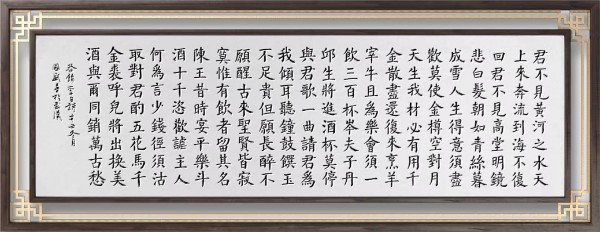 君不見黃河之水天
上來奔流到海不復
回君不見高堂明鏡
悲白髮朝如青絲暮
成雪人生得意須盡
歡莫使金樽空對月
天生我材必有用千
金散盡還復來烹羊
宰牛且為樂會須一
飲三百杯岑夫子丹
邱生將進酒杯莫停
與君歌一曲請君為
我傾耳聽鐘鼓饌玉
不足貴但願長醉不
願醒古來聖賢皆寂
寞惟有飲者留其名
陳王昔時宴平樂斗
酒十千恣歡謔主人
何為言少錢徑須沽
取對君酌五花馬千
金裘呼兒將出換美
酒與爾同銷萬古愁
李白詩